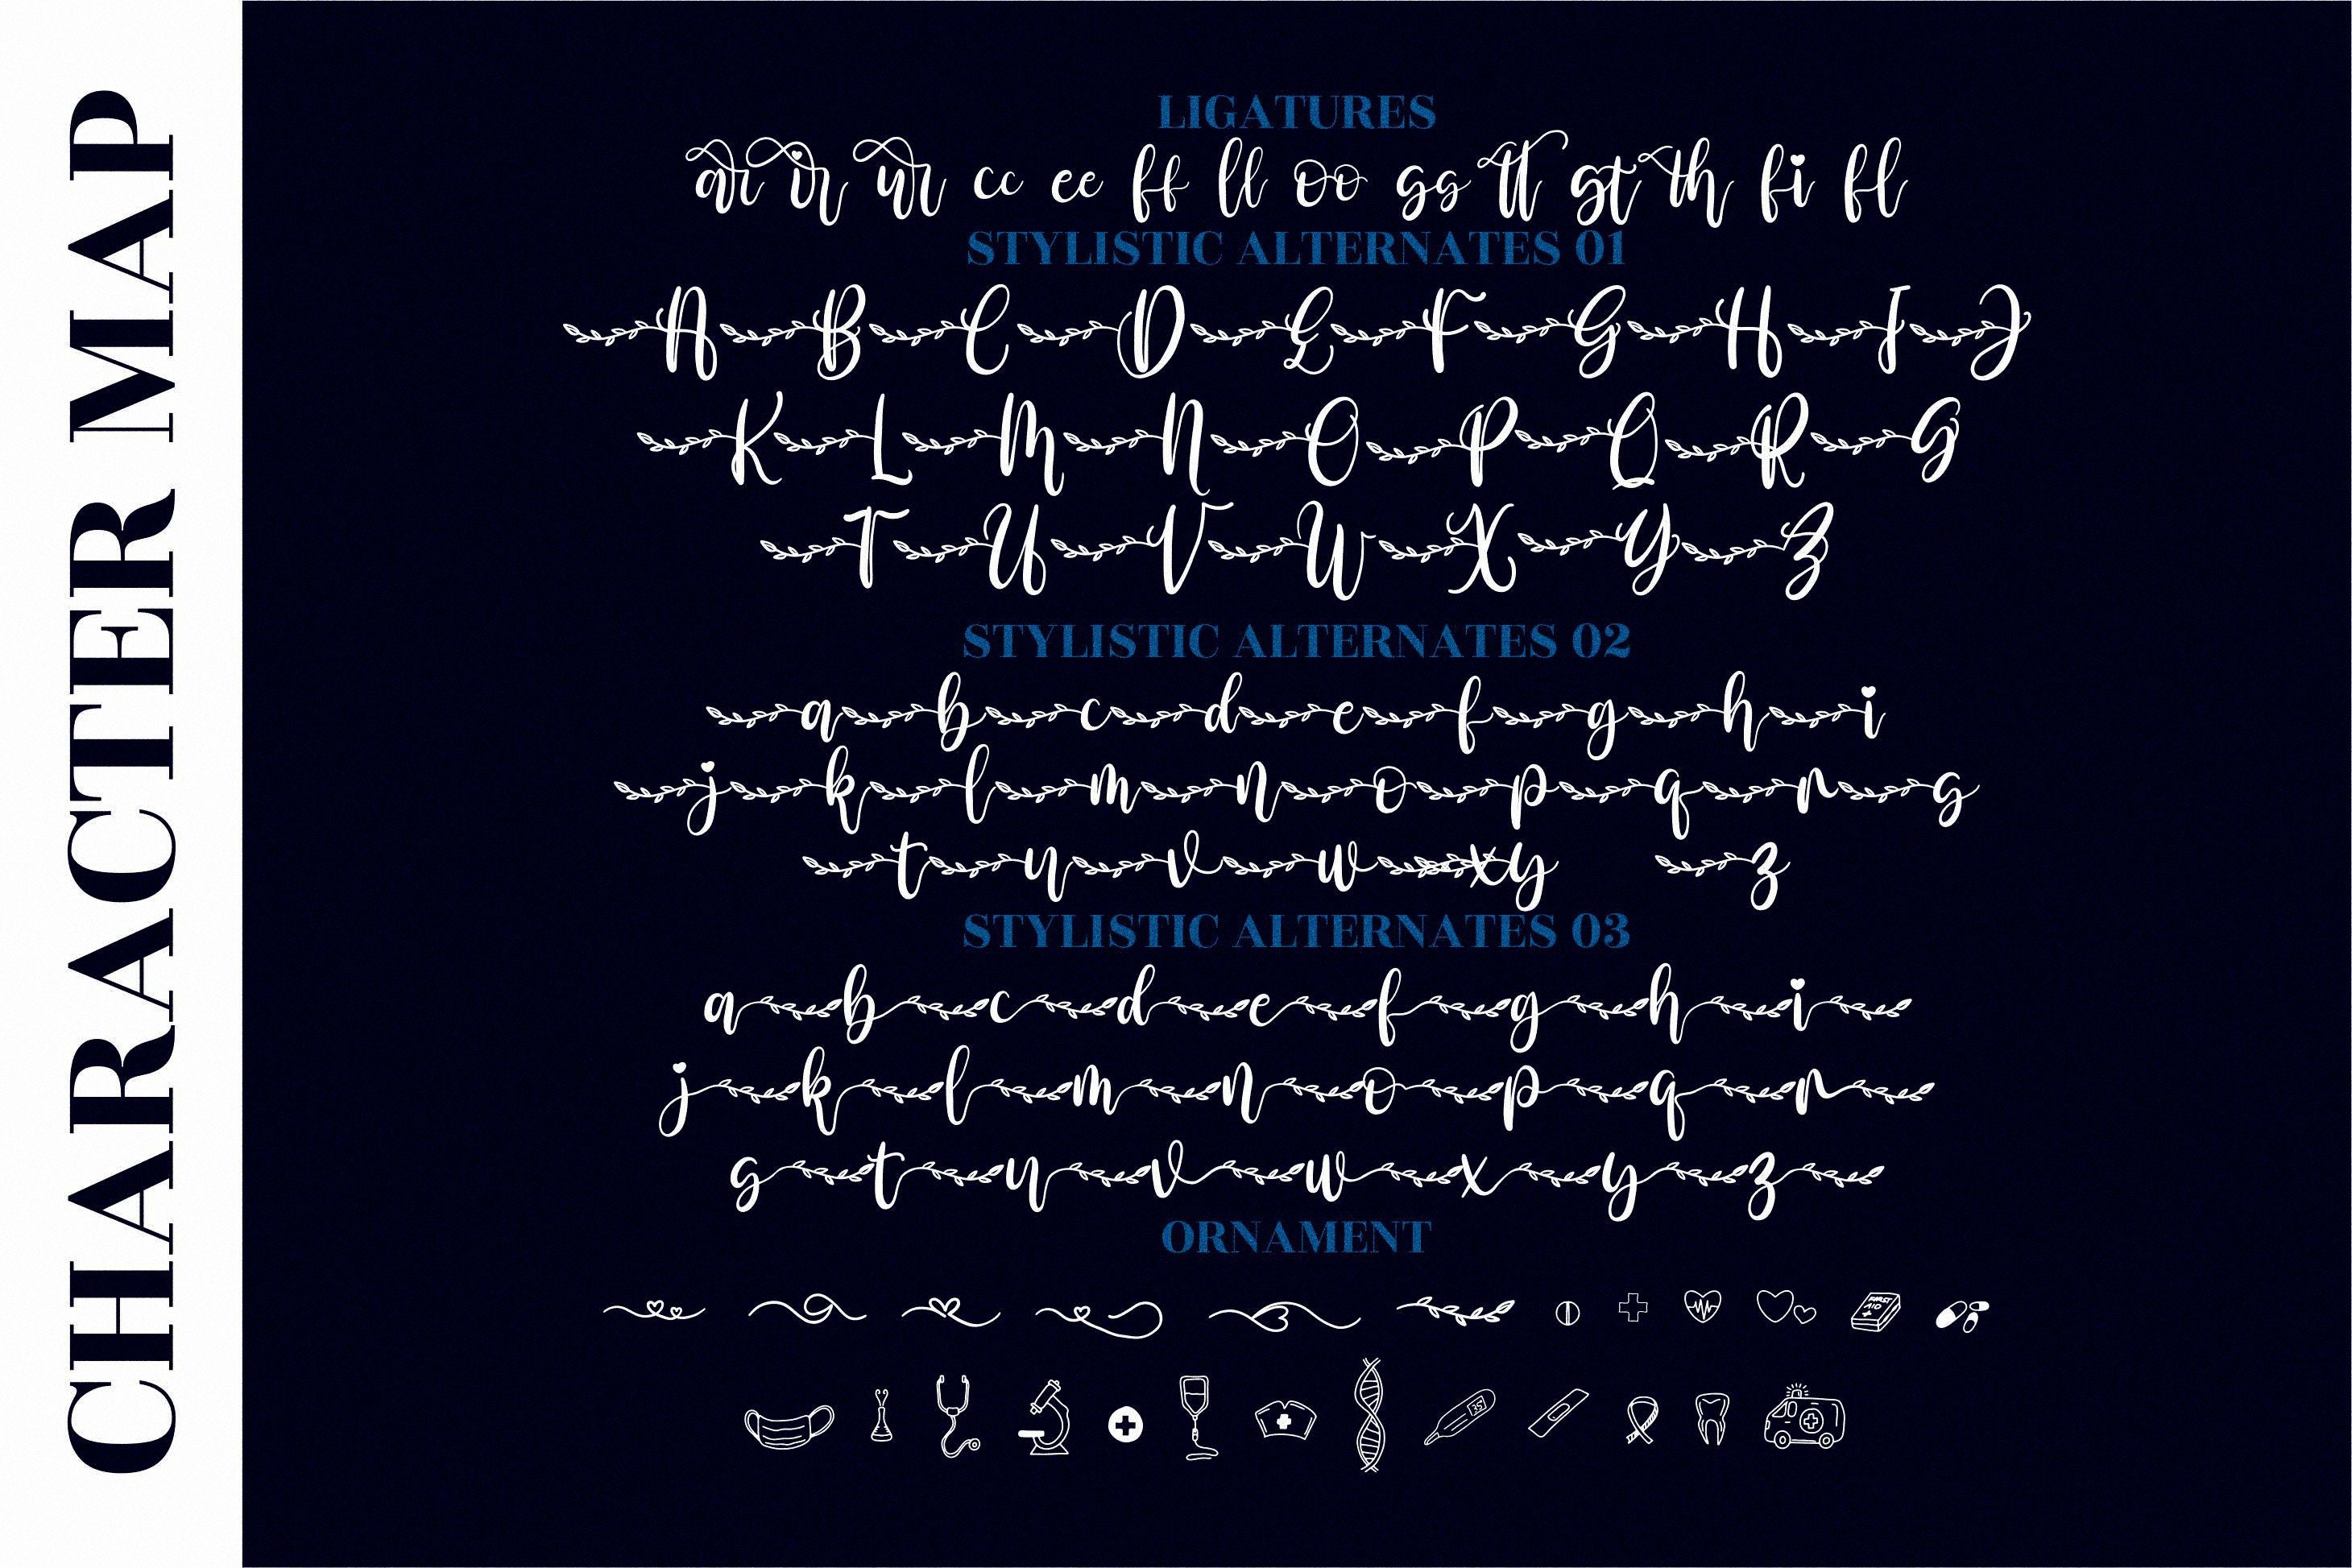 CHARACTER MAP
LIGATURES
ar ir ur cc ee ff ll oo ss tt st th fi fl
STYLISTIC ALTERNATES 01
A B C D E F G H I J
K L M N O P Q R S
T U V W X Y Z
STYLISTIC ALTERNATES 02
a b c d e f g h i
j k l m n o p q r s
t u v w x y z
STYLISTIC ALTERNATES 03
a b c d e f g h i
j k l m n o p q r
s t u v w x y z
ORNAMENT
FIRST
AID